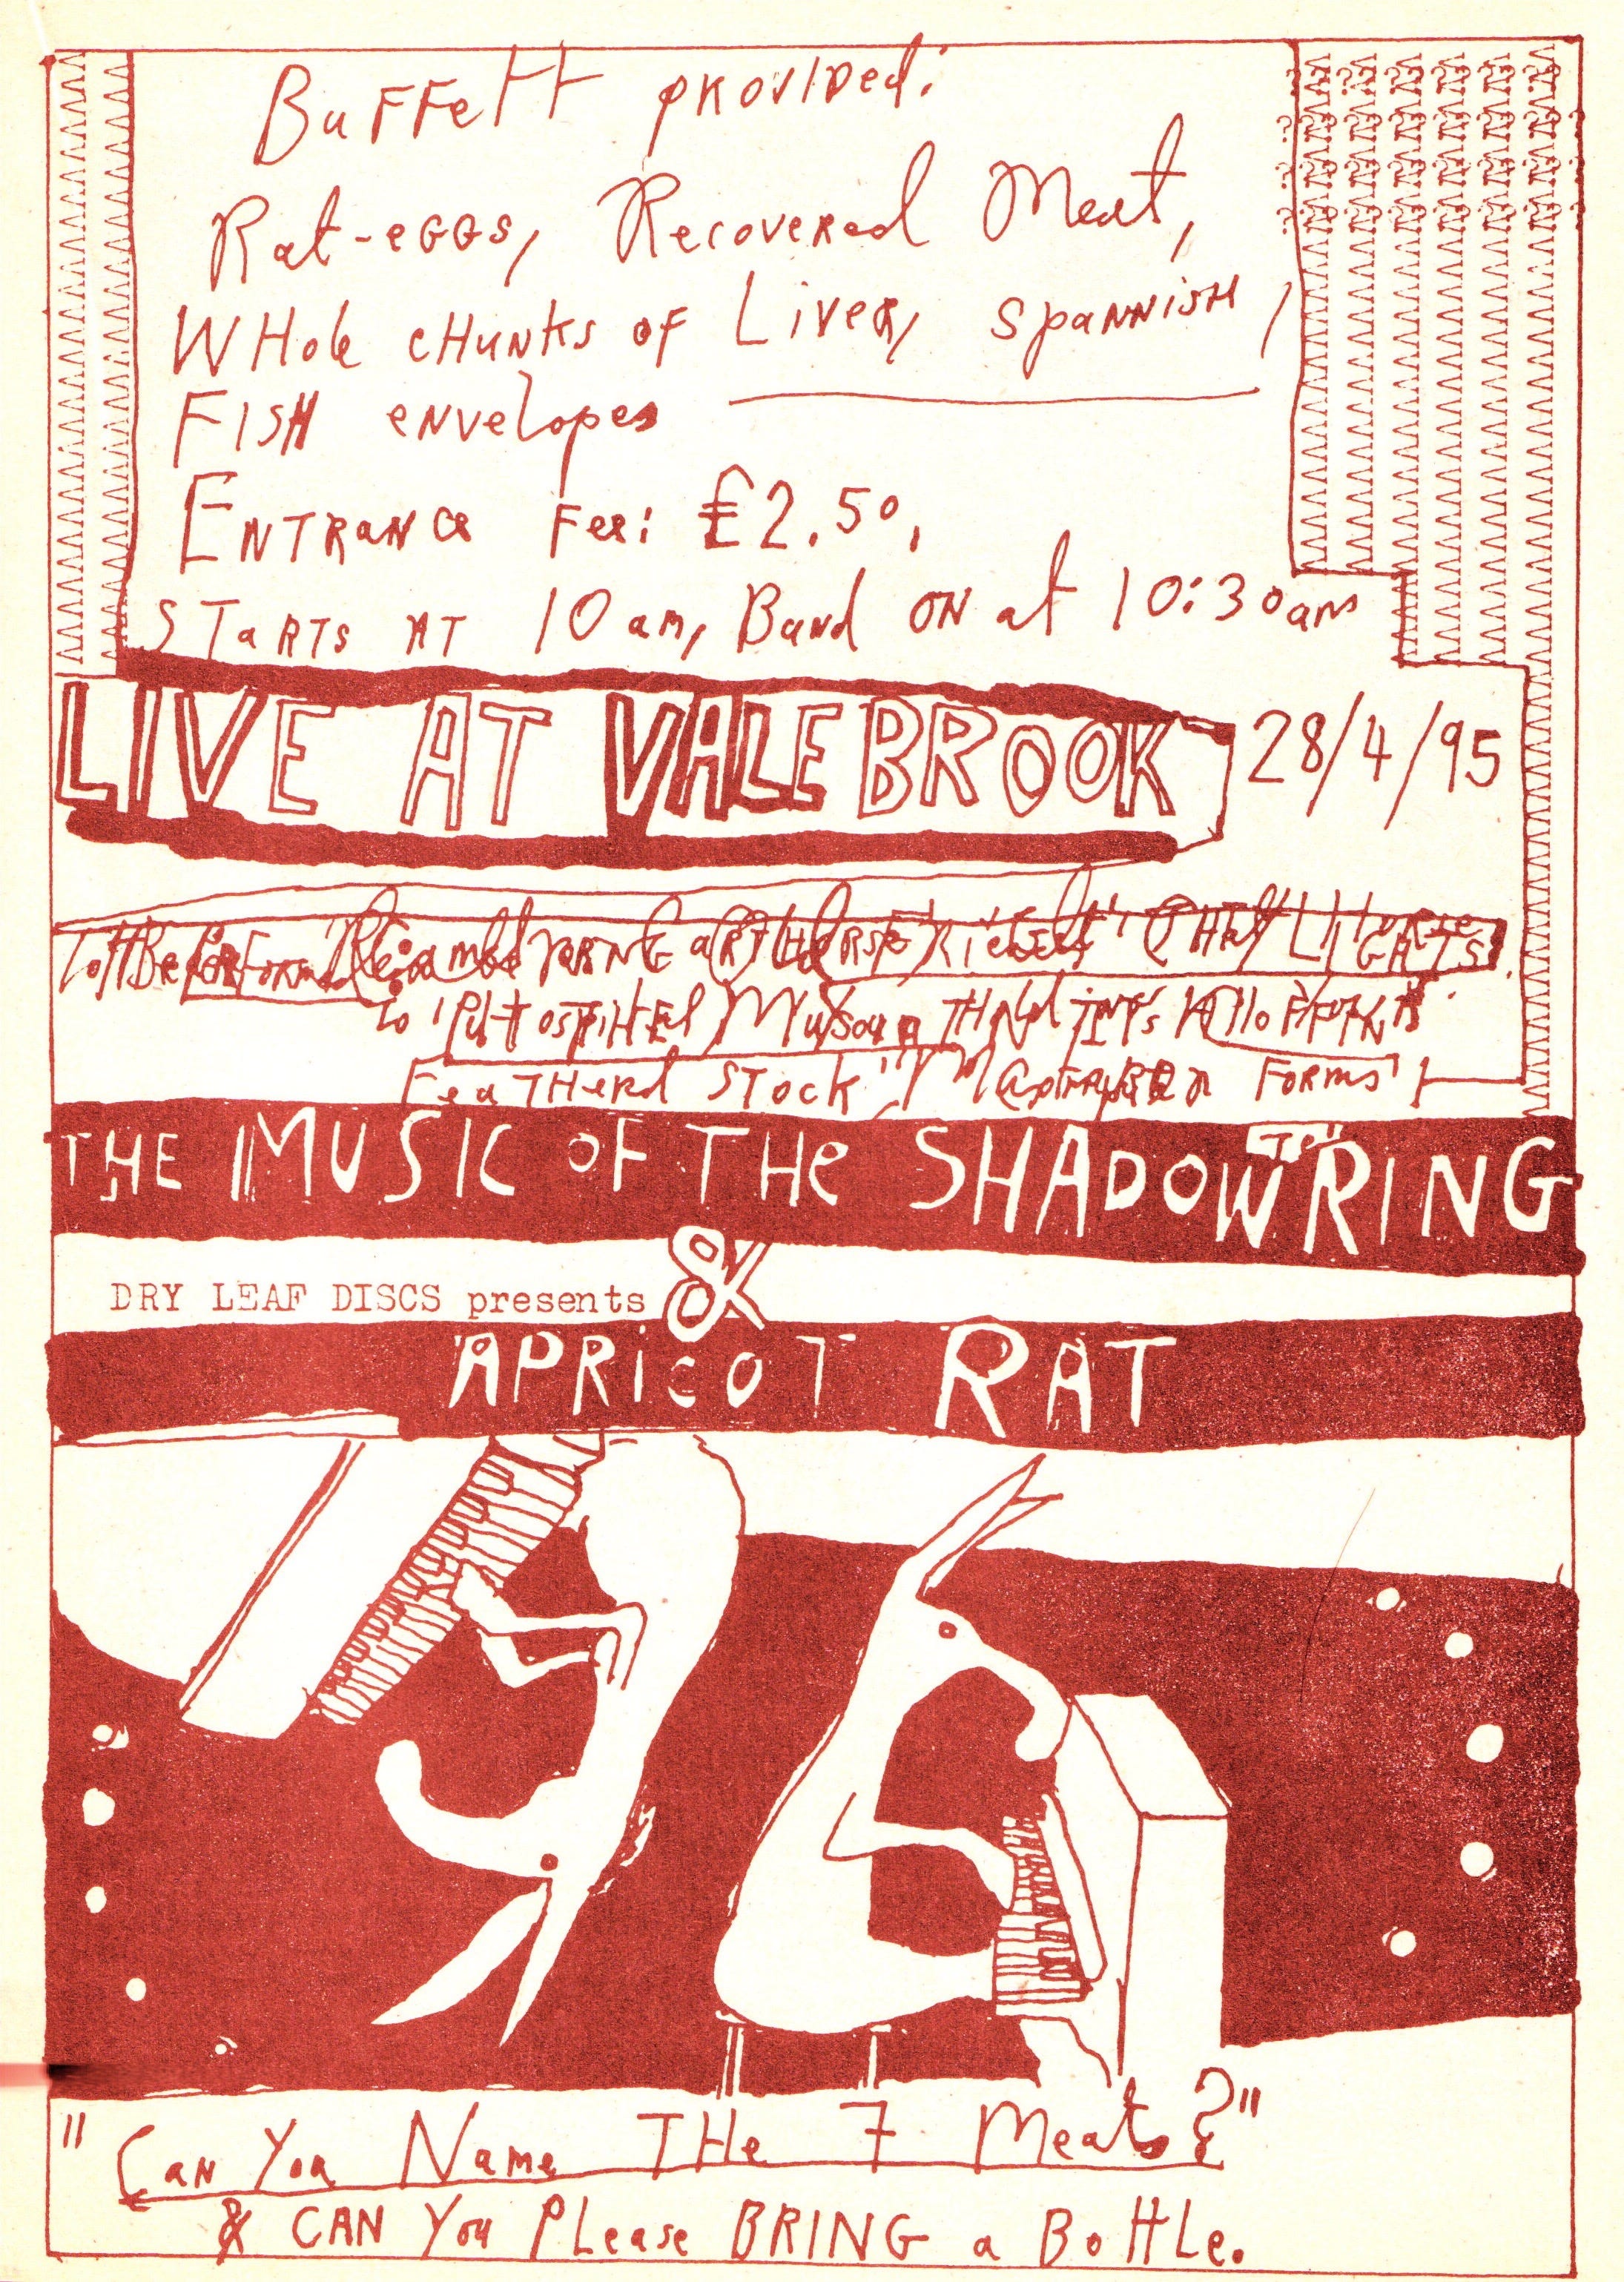 Buffett provided:
Rat-eggs, Recovered Meat,
Whole chunks of Liver, spannish,
Fish envelopes
Entrance Fee: £2.50,
Starts at 10am, Band on at 10:30am
LIVE AT VALEBROOK 28/4/95
Featherd Stock" Forms'
THE MUSIC OF THE SHADOW RING
&
DRY LEAF DISCS presents
APRICOT RAT
"Can You Name The 7 Meats?"
& CAN You Please BRING a Bottle.